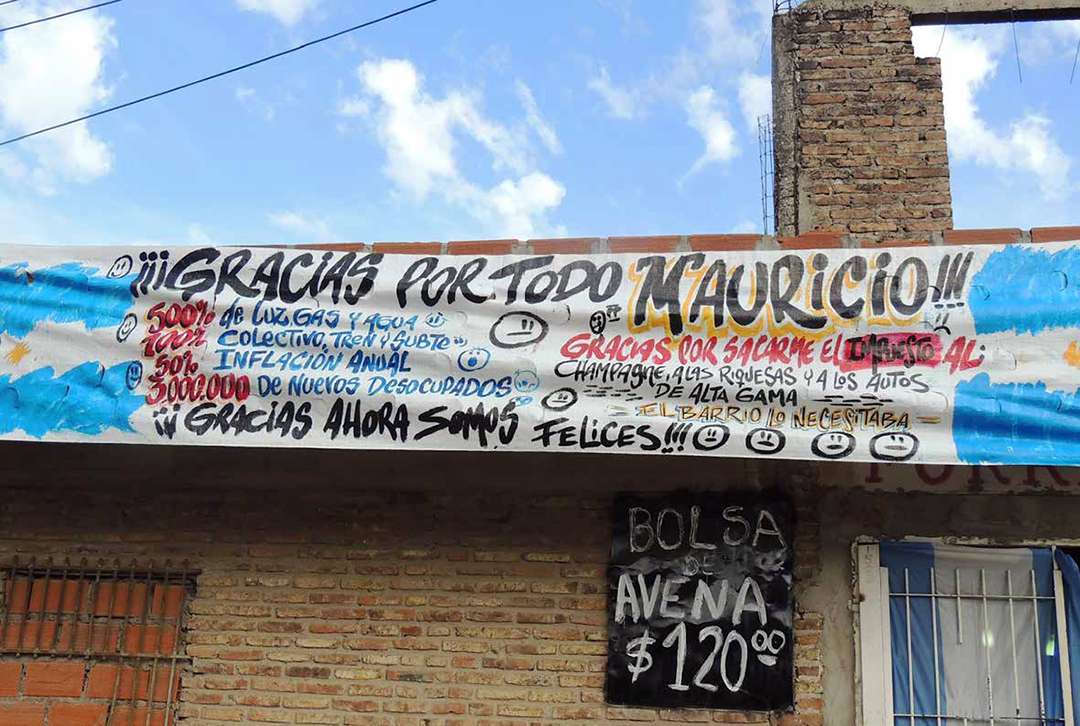 ¡¡¡GRACIAS POR TODO MAURICIO!!!
500% de LUZ, GAS Y AGUA
100% COLECTIVO, TREN Y SUBTO"
50% INFLACIÓN ANUAL
3.000.000 DE NUEVOS DESOCUPADOS
GRACIAS POR SACARME EL IMPUESTO AL:
CHAMPAGNE, A LAS RIQUESAS Y A LOS AUTOS
DE ALTA GAMA
EL BARRIO LO NECESITABA
¡¡¡GRACIAS AHORA SOMOS FELICES!!!
BOLSA
DE
AVENA
$120⁰⁰